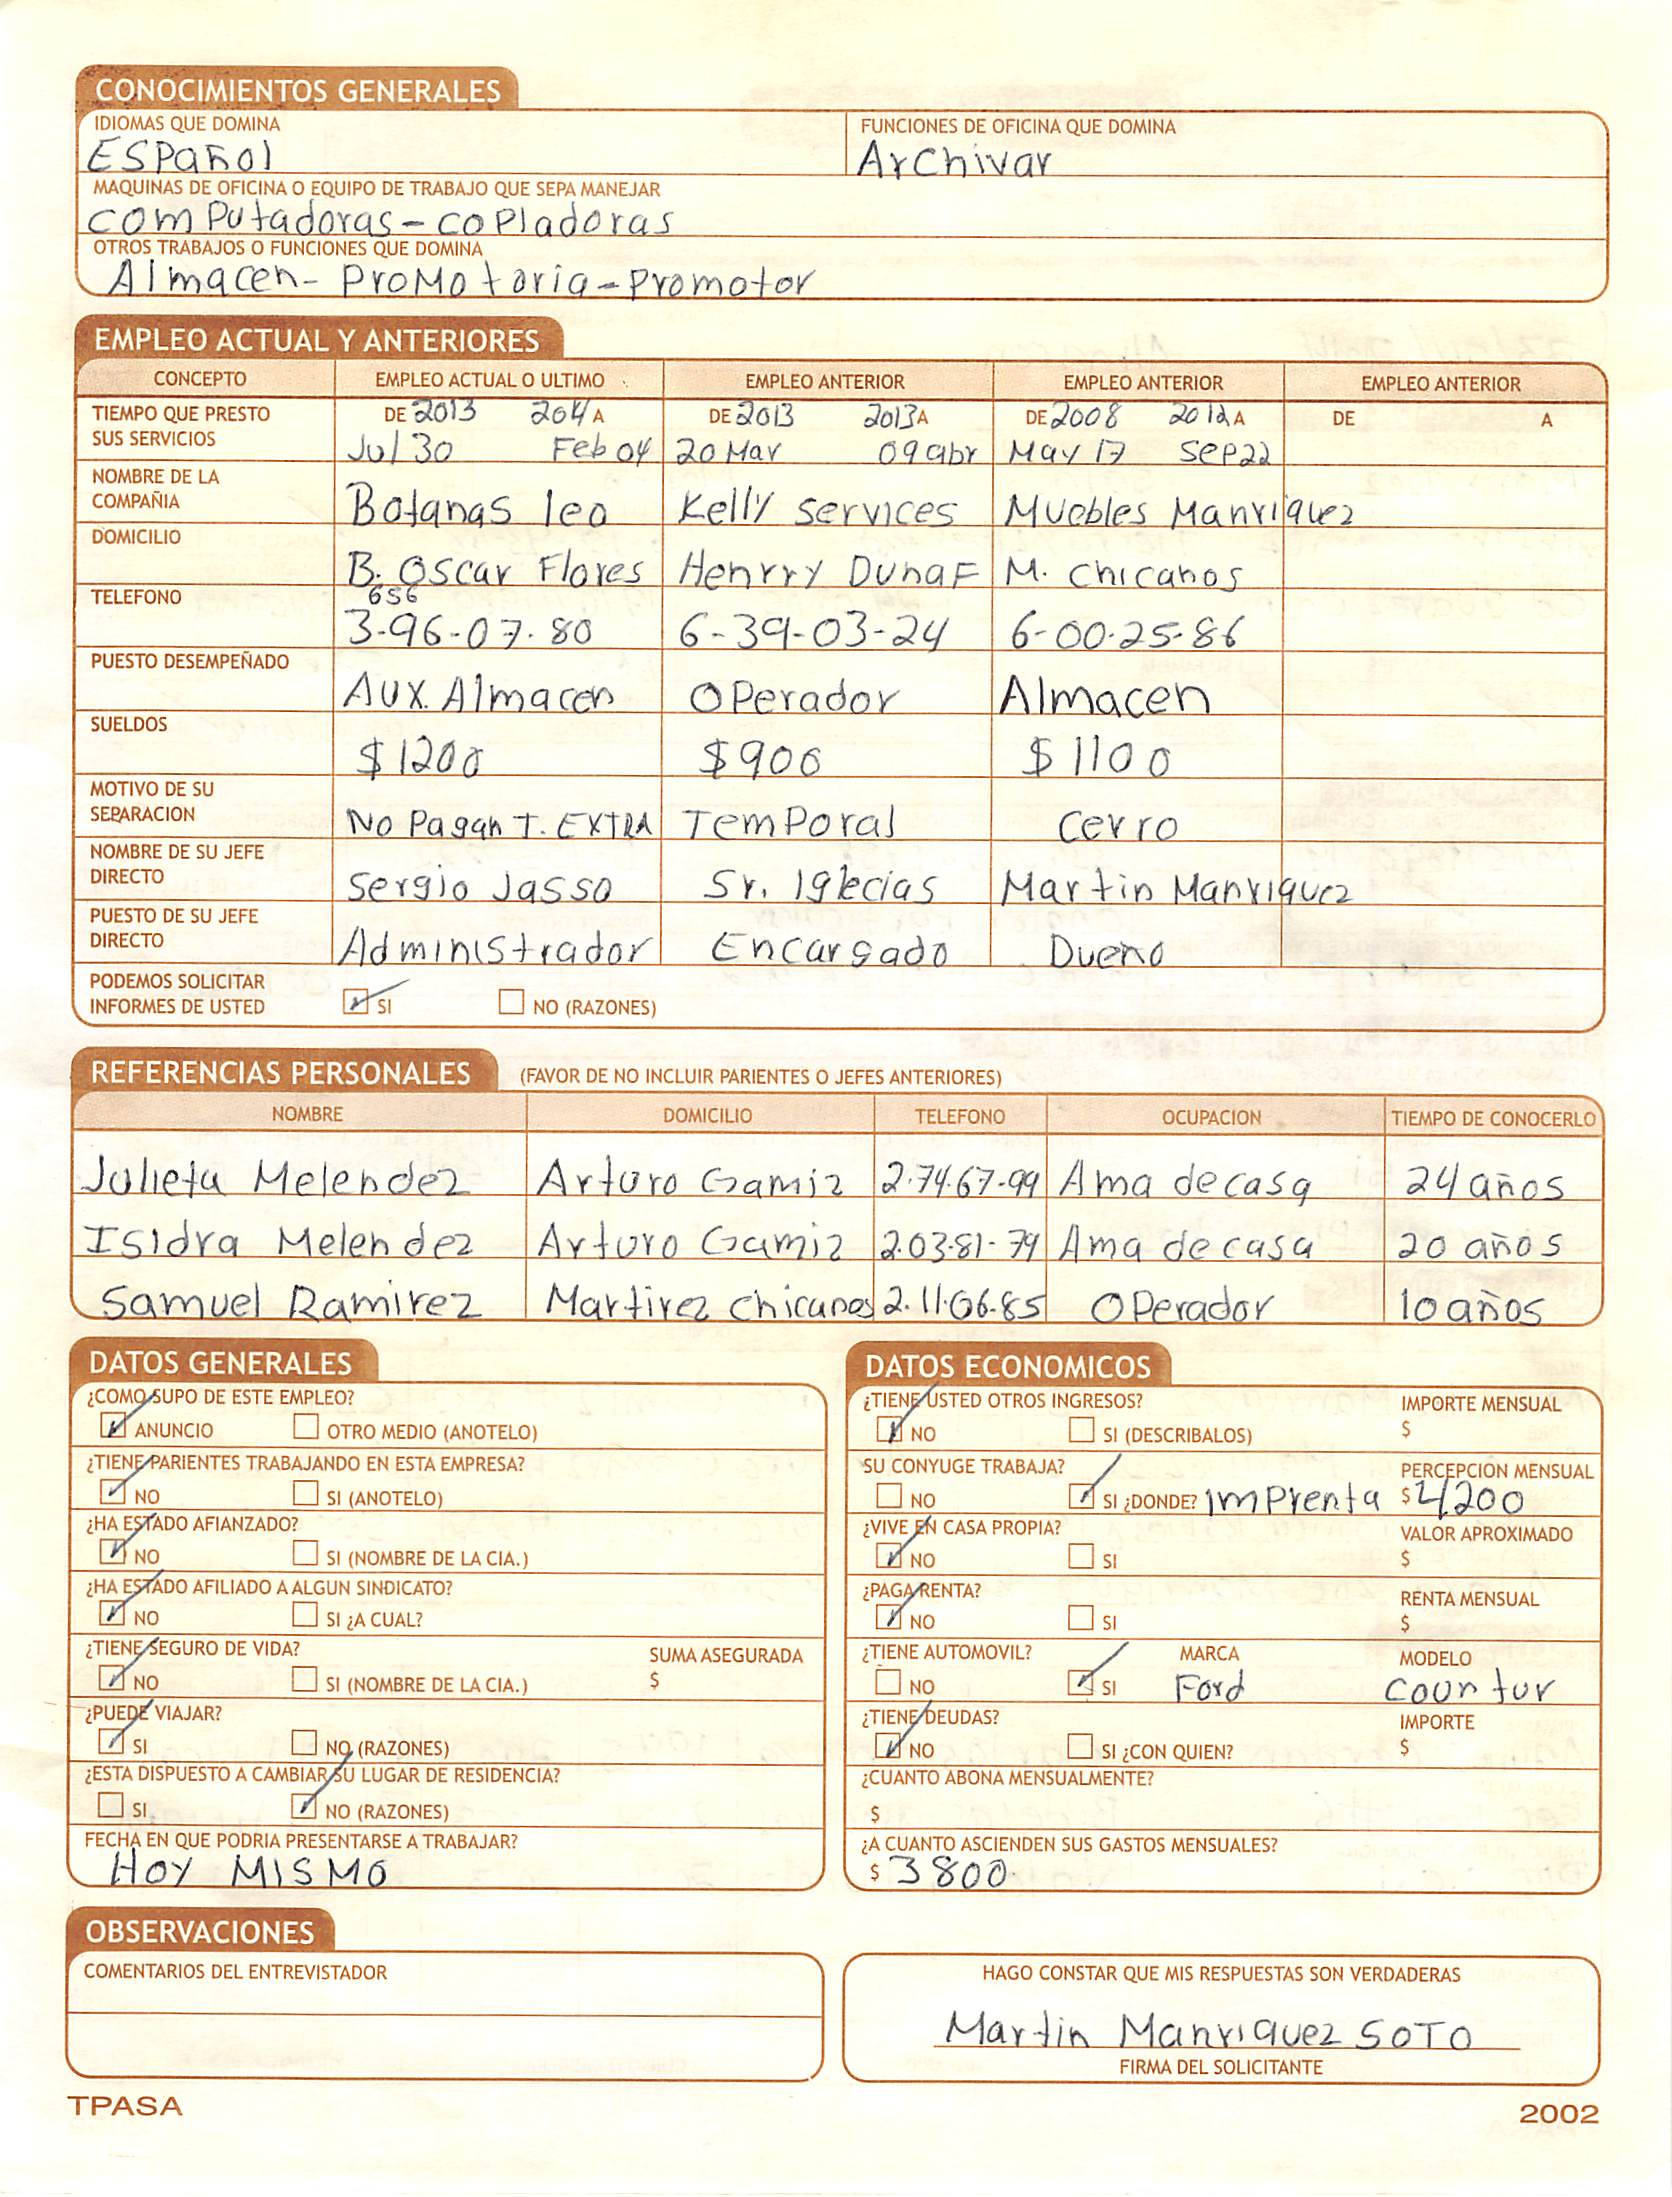 CONOCIMIENTOS GENERALES
IDIOMAS QUE DOMINA FUNCIONES DE OFICINA QUE DOMINA
ESPañol Archivar
MAQUINAS DE OFICINA O EQUIPO DE TRABAJO QUE SEPA MANEJAR
comPutadoras - coPiadoras
OTROS TRABAJOS O FUNCIONES QUE DOMINA
Almacen - ProMotoria - Promotor
EMPLEO ACTUAL Y ANTERIORES
CONCEPTO EMPLEO ACTUAL O ULTIMO EMPLEO ANTERIOR EMPLEO ANTERIOR EMPLEO ANTERIOR
TIEMPO QUE PRESTO DE 2013 2014 A DE 2013 2013 A DE 2008 2012 A DE A
SUS SERVICIOS Jul 30 Feb 04 20 Mar 09 abr May 17 Sep 22
NOMBRE DE LA
COMPAÑIA Botanas leo Kelly services Muebles Manriquez
DOMICILIO B. Oscar Flores Henrry Dunaf M. chicanos
TELEFONO 656
3-96-07-80 6-39-03-24 6-00-25-86
PUESTO DESEMPEÑADO
Aux. Almacen OPerador Almacen
SUELDOS
$1200 $900 $1100
MOTIVO DE SU
SEPARACION No Pagan T. EXTRA TemPoral cerro
NOMBRE DE SU JEFE
DIRECTO Sergio Jasso Sr. Iglecias Martin Manriquez
PUESTO DE SU JEFE
DIRECTO Administrador Encargado Dueno
PODEMOS SOLICITAR
INFORMES DE USTED SI NO (RAZONES)
REFERENCIAS PERSONALES (FAVOR DE NO INCLUIR PARIENTES O JEFES ANTERIORES)
NOMBRE DOMICILIO TELEFONO OCUPACION TIEMPO DE CONOCERLO
Julieta Melendez Arturo Gamiz 2-74-67-99 Ama de casa 24 años
Isidra Melendez Arturo Gamiz 2-03-81-79 Ama de casa 20 años
Samuel Ramirez Martirez chicanos 2-11-06-85 OPerador 10 años
DATOS GENERALES
¿COMO SUPO DE ESTE EMPLEO?
ANUNCIO OTRO MEDIO (ANOTELO)
¿TIENE PARIENTES TRABAJANDO EN ESTA EMPRESA?
NO SI (ANOTELO)
¿HA ESTADO AFIANZADO?
NO SI (NOMBRE DE LA CIA.)
¿HA ESTADO AFILIADO A ALGUN SINDICATO?
NO SI ¿A CUAL?
¿TIENE SEGURO DE VIDA? SUMA ASEGURADA
NO SI (NOMBRE DE LA CIA.) $
¿PUEDE VIAJAR?
SI NO (RAZONES)
¿ESTA DISPUESTO A CAMBIAR SU LUGAR DE RESIDENCIA?
SI NO (RAZONES)
FECHA EN QUE PODRIA PRESENTARSE A TRABAJAR?
HOY MISMO
DATOS ECONOMICOS
¿TIENE USTED OTROS INGRESOS? IMPORTE MENSUAL
NO SI (DESCRIBALOS) $
SU CONYUGE TRABAJA? PERCEPCION MENSUAL
NO SI ¿DONDE? imPrenta $ 4200
¿VIVE EN CASA PROPIA? VALOR APROXIMADO
NO SI $
¿PAGA RENTA? RENTA MENSUAL
NO SI $
¿TIENE AUTOMOVIL? MARCA MODELO
NO SI Ford countur
¿TIENE DEUDAS? IMPORTE
NO SI ¿CON QUIEN? $
¿CUANTO ABONA MENSUALMENTE?
$
¿A CUANTO ASCIENDEN SUS GASTOS MENSUALES?
$ 3800
OBSERVACIONES
COMENTARIOS DEL ENTREVISTADOR
HAGO CONSTAR QUE MIS RESPUESTAS SON VERDADERAS
Martin Manriquez SOTO
FIRMA DEL SOLICITANTE
TPASA 2002